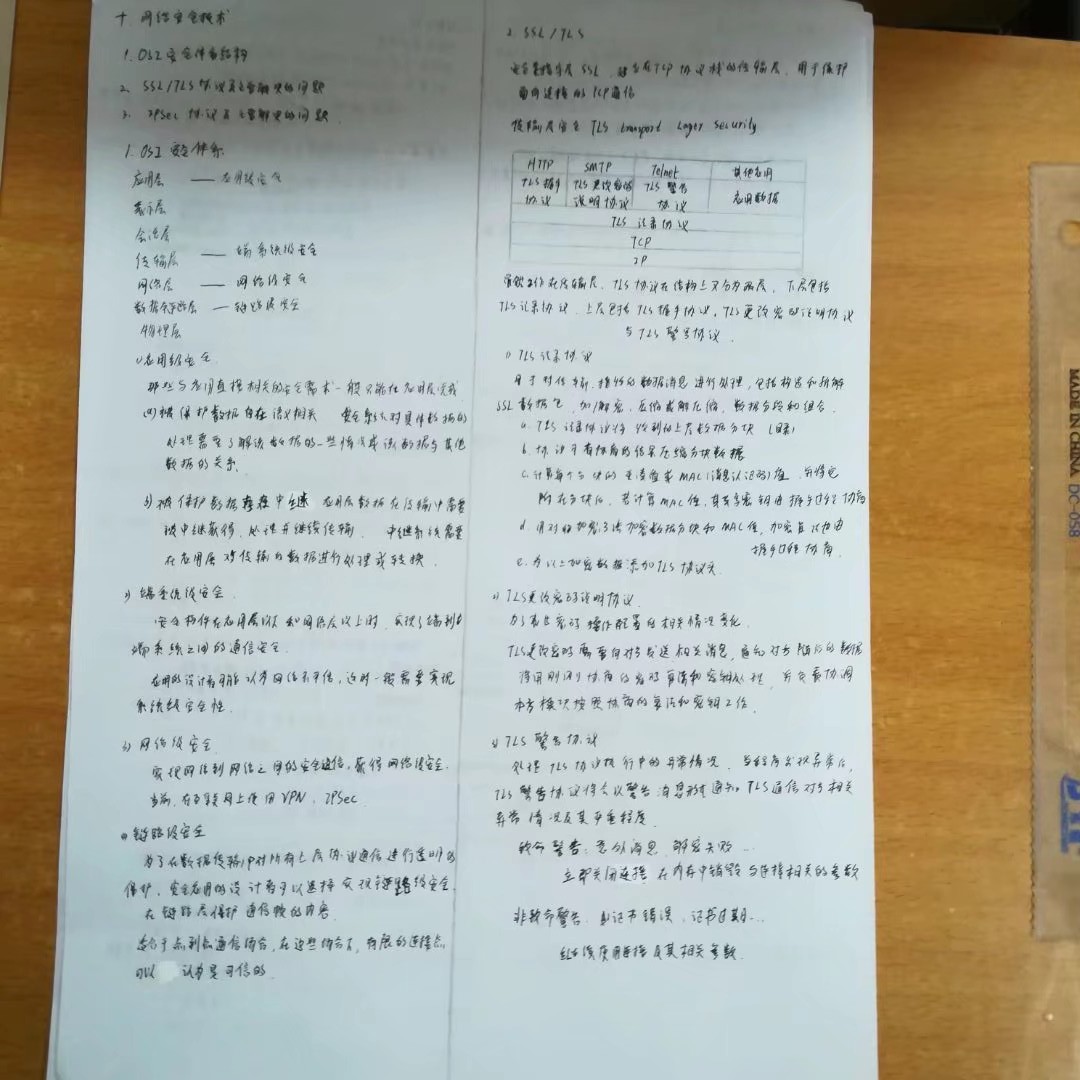 十 网络安全技术
1. OSI 安全体系结构
2. SSL/TLS 协议及主要解决的问题
3. IPSec 协议及主要解决的问题
1. OSI 安全体系
应用层 —— 应用级安全
表示层
会话层
传输层 —— 端系统级安全
网络层 —— 网络级安全
数据链路层 —— 链路级安全
物理层
1) 应用级安全
那些与应用直接相关的安全需求一般只能在应用层完成
(a) 被保护数据存在语义相关 安全系统对具体数据的
处理需要了解该数据的一些情况或该数据与其他
数据的关系
b) 被保护数据存在中继 应用层数据在传输中需要
被中继获得、处理并继续传输 中继系统需要
在应用层对传输的数据进行处理或转换
2) 端系统级安全
安全构件在应用层以下和网络层以上时，实现了端到
端系统之间的通信安全
应用的设计者可能认为网络不可信，这时一般需要实现
系统级安全性
3) 网络级安全
实现网络到网络之间的安全通信，获得网络级安全.
当前，在互联网上使用 VPN、IPSec
4) 链路级安全
为了在数据传输中对所有上层协议通信进行透明的
保护，安全应用的设计者可以选择实现链路级安全，
在链路层保护通信帧的内容
适合于点到点通信场合，在这些场合下，有限的连接点
可以 认为是可信的
2. SSL/TLS
安全套接字层 SSL 建立在TCP协议栈的传输层，用于保护
面向连接的TCP通信
传输层安全 TLS transport Layer Security
HTTP SMTP Telnet 其他应用
TLS 握手协议 TLS 更改密码说明协议 TLS 警告协议 应用数据
TLS 记录协议
TCP
IP
工作在传输层，TLS协议在结构上又分为两层，下层包括
TLS记录协议，上层包括TLS握手协议，TLS更改密码说明协议
与TLS警告协议
1) TLS 记录协议
用于对传输、接收的数据消息进行处理，包括构造和拆解
SSL数据包，加/解密，压缩或解压缩，数据分段和组合
a. TLS 记录协议将收到的上层数据分块
b. 协议可看协商的结果压缩分块数据
c. 计算每个分块的MAC(消息认证码)值，并将它
附在分块后，若计算MAC值，其共享密钥由握手过程协商
d. 用对称加密方法加密数据分块和MAC值，加密算法由
握手过程协商
e. 为以上加密数据添加TLS协议头
2) TLS更改密码说明协议
为了表示密码操作配置的相关情况变化
TLS更改密码需要向对方发送相关消息，通知对方随后的数据
将用刚刚协商的密码算法和密钥处理，并负责协调
本方模块按照协商的算法和密钥工作
3) TLS 警告协议
处理TLS协议执行中的异常情况，当程序出现异常后，
TLS 警告协议将会以警告消息形式通知TLS通信对方相关
异常情况及其严重程度
致命警告：意外消息，解密失败...
立即关闭连接 在内存中销毁与连接相关的参数
非致命警告：证书错误，证书过期...
继续使用连接及其相关参数
MADE IN CHINA DC-058